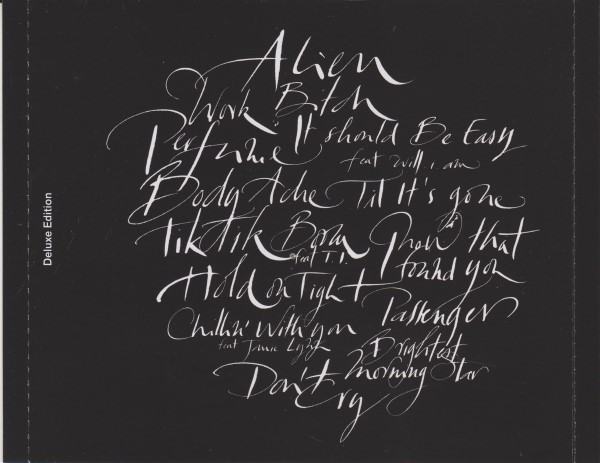 Alien
Work Bitch
Perfume It should Be Easy
feat will i am
Body Ache Til It's gone
Tik Tik Boom Now that
feat T.I.
Hold on Tight found you
Passenger
Chillin' With you
feat Jamie Lynn
Brightest
Morning Star
Don't
Cry
Deluxe Edition